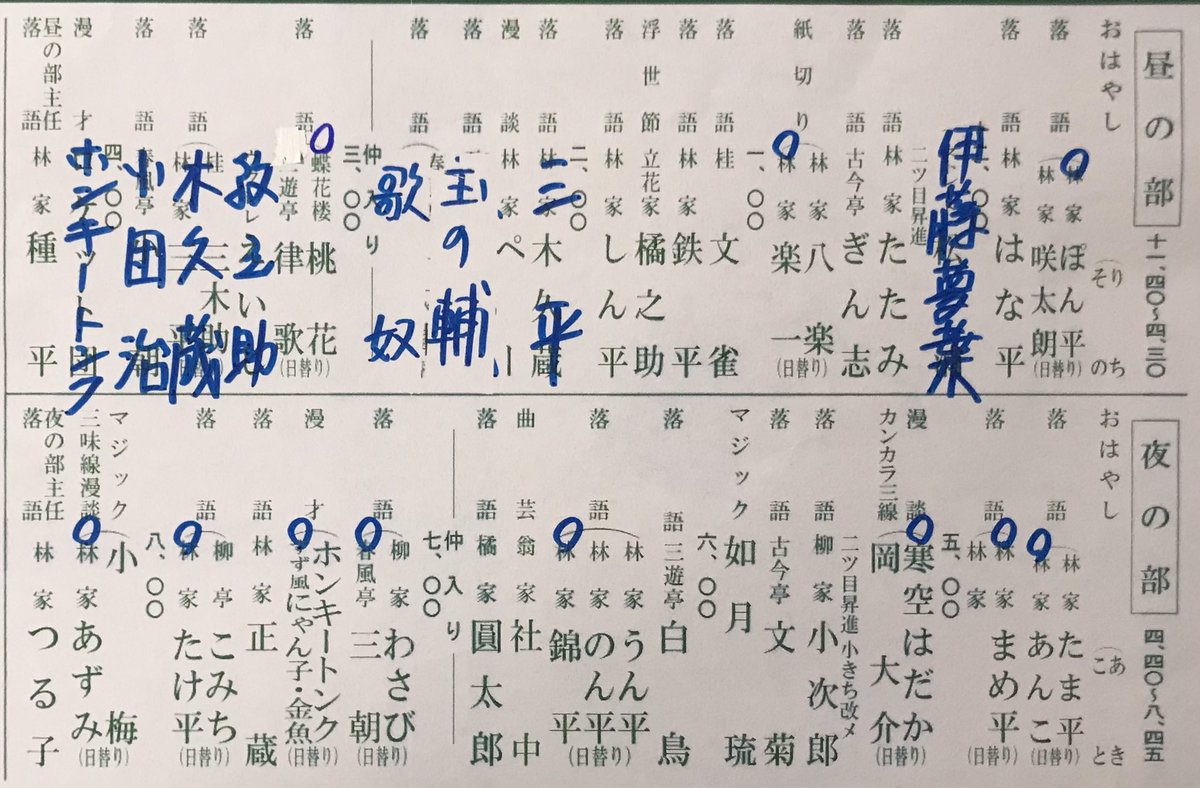 昼の部 十一、四〇〜四、三〇
おはやし（りち その
落語（林家ぽん平
林家咲太朗（日替り）
落語 林家はな平
伊藤夢葉
二ツ目昇進
落語 林家たたみ
落語 古今亭ぎん志
紙切り（林家八楽
林家楽一（日替り）
一、〇〇
落語 桂文雀
落語 林家鉄平
浮世節 立花家橘之助
落語 林家しん平
二、〇〇
落語 林家木久蔵
三平
漫談 林家ペー
落語 玉の輔
落語 歌奴
仲入り
三、〇〇
落語 蝶花楼桃花
三遊亭律歌（日替り）
落語 木久蔵
落語 小団治
四、〇〇
漫才 ホンキートンク
昼の部主任
落語 林家種平
夜の部 四、四〇〜八、四五
おはやし（あき こと
落語（林家たま平
林家あんこ（日替り）
林家まめ平（日替り）
林家
五、〇〇
漫談 寒空はだか
カンカラ三線 岡大介（日替り）
二ツ目昇進 小きち改メ
落語 柳家小次郎
落語 古今亭文菊
マジック 如月琉
六、〇〇
落語 三遊亭白鳥
落語（林家うん平
林家のん平
林家錦平（日替り）
曲芸 翁家社中
落語 橘家圓太郎
仲入り
七、〇〇
落語（柳家わさび
春風亭三朝（日替り）
漫才（ホンキートンク
すず風にゃん子・金魚（日替り）
落語 林家正蔵
落語（柳亭こみち
林家たけ平（日替り）
八、〇〇
マジック 小梅
三味線漫談 林家あずみ（日替り）
夜の部主任
落語 林家つる子